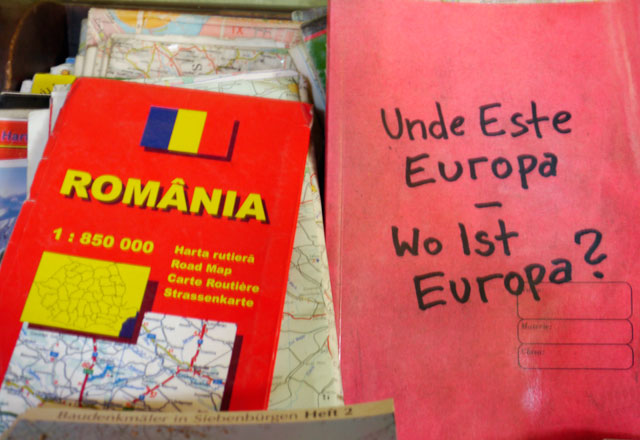 ROMÂNIA
1 : 850 000
Harta rutieră
Road Map
Carte Routière
Strassenkarte
Unde Este
Europa
–
Wo Ist
Europa?
Materia:
Clasa:
Baudenkmäler in Siebenbürgen Heft 2